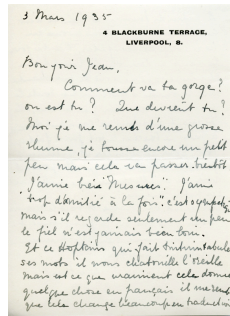 3 Mars 1935
4 BLACKBURNE TERRACE,
LIVERPOOL, 8.
Bonjour Jean,
Comment va ta gorge?
où est tu? Que devient tu?
Moi je me remets d'une grosse
rhume, je tousse encore un petit
peu mais cela va passer bientôt
J'aime bien
trop d'amitié à la fois", c'est
mais s'il regarde seulement un peu
le fiel n'est jamais bien loin.
Et ce Hopkins qui fait tintinnabuler
ses mots il nous chatouille l'oreille
mais est ce que vraiment cela donne
quelque chose en français il me semble
que cela change beaucoup en traduction